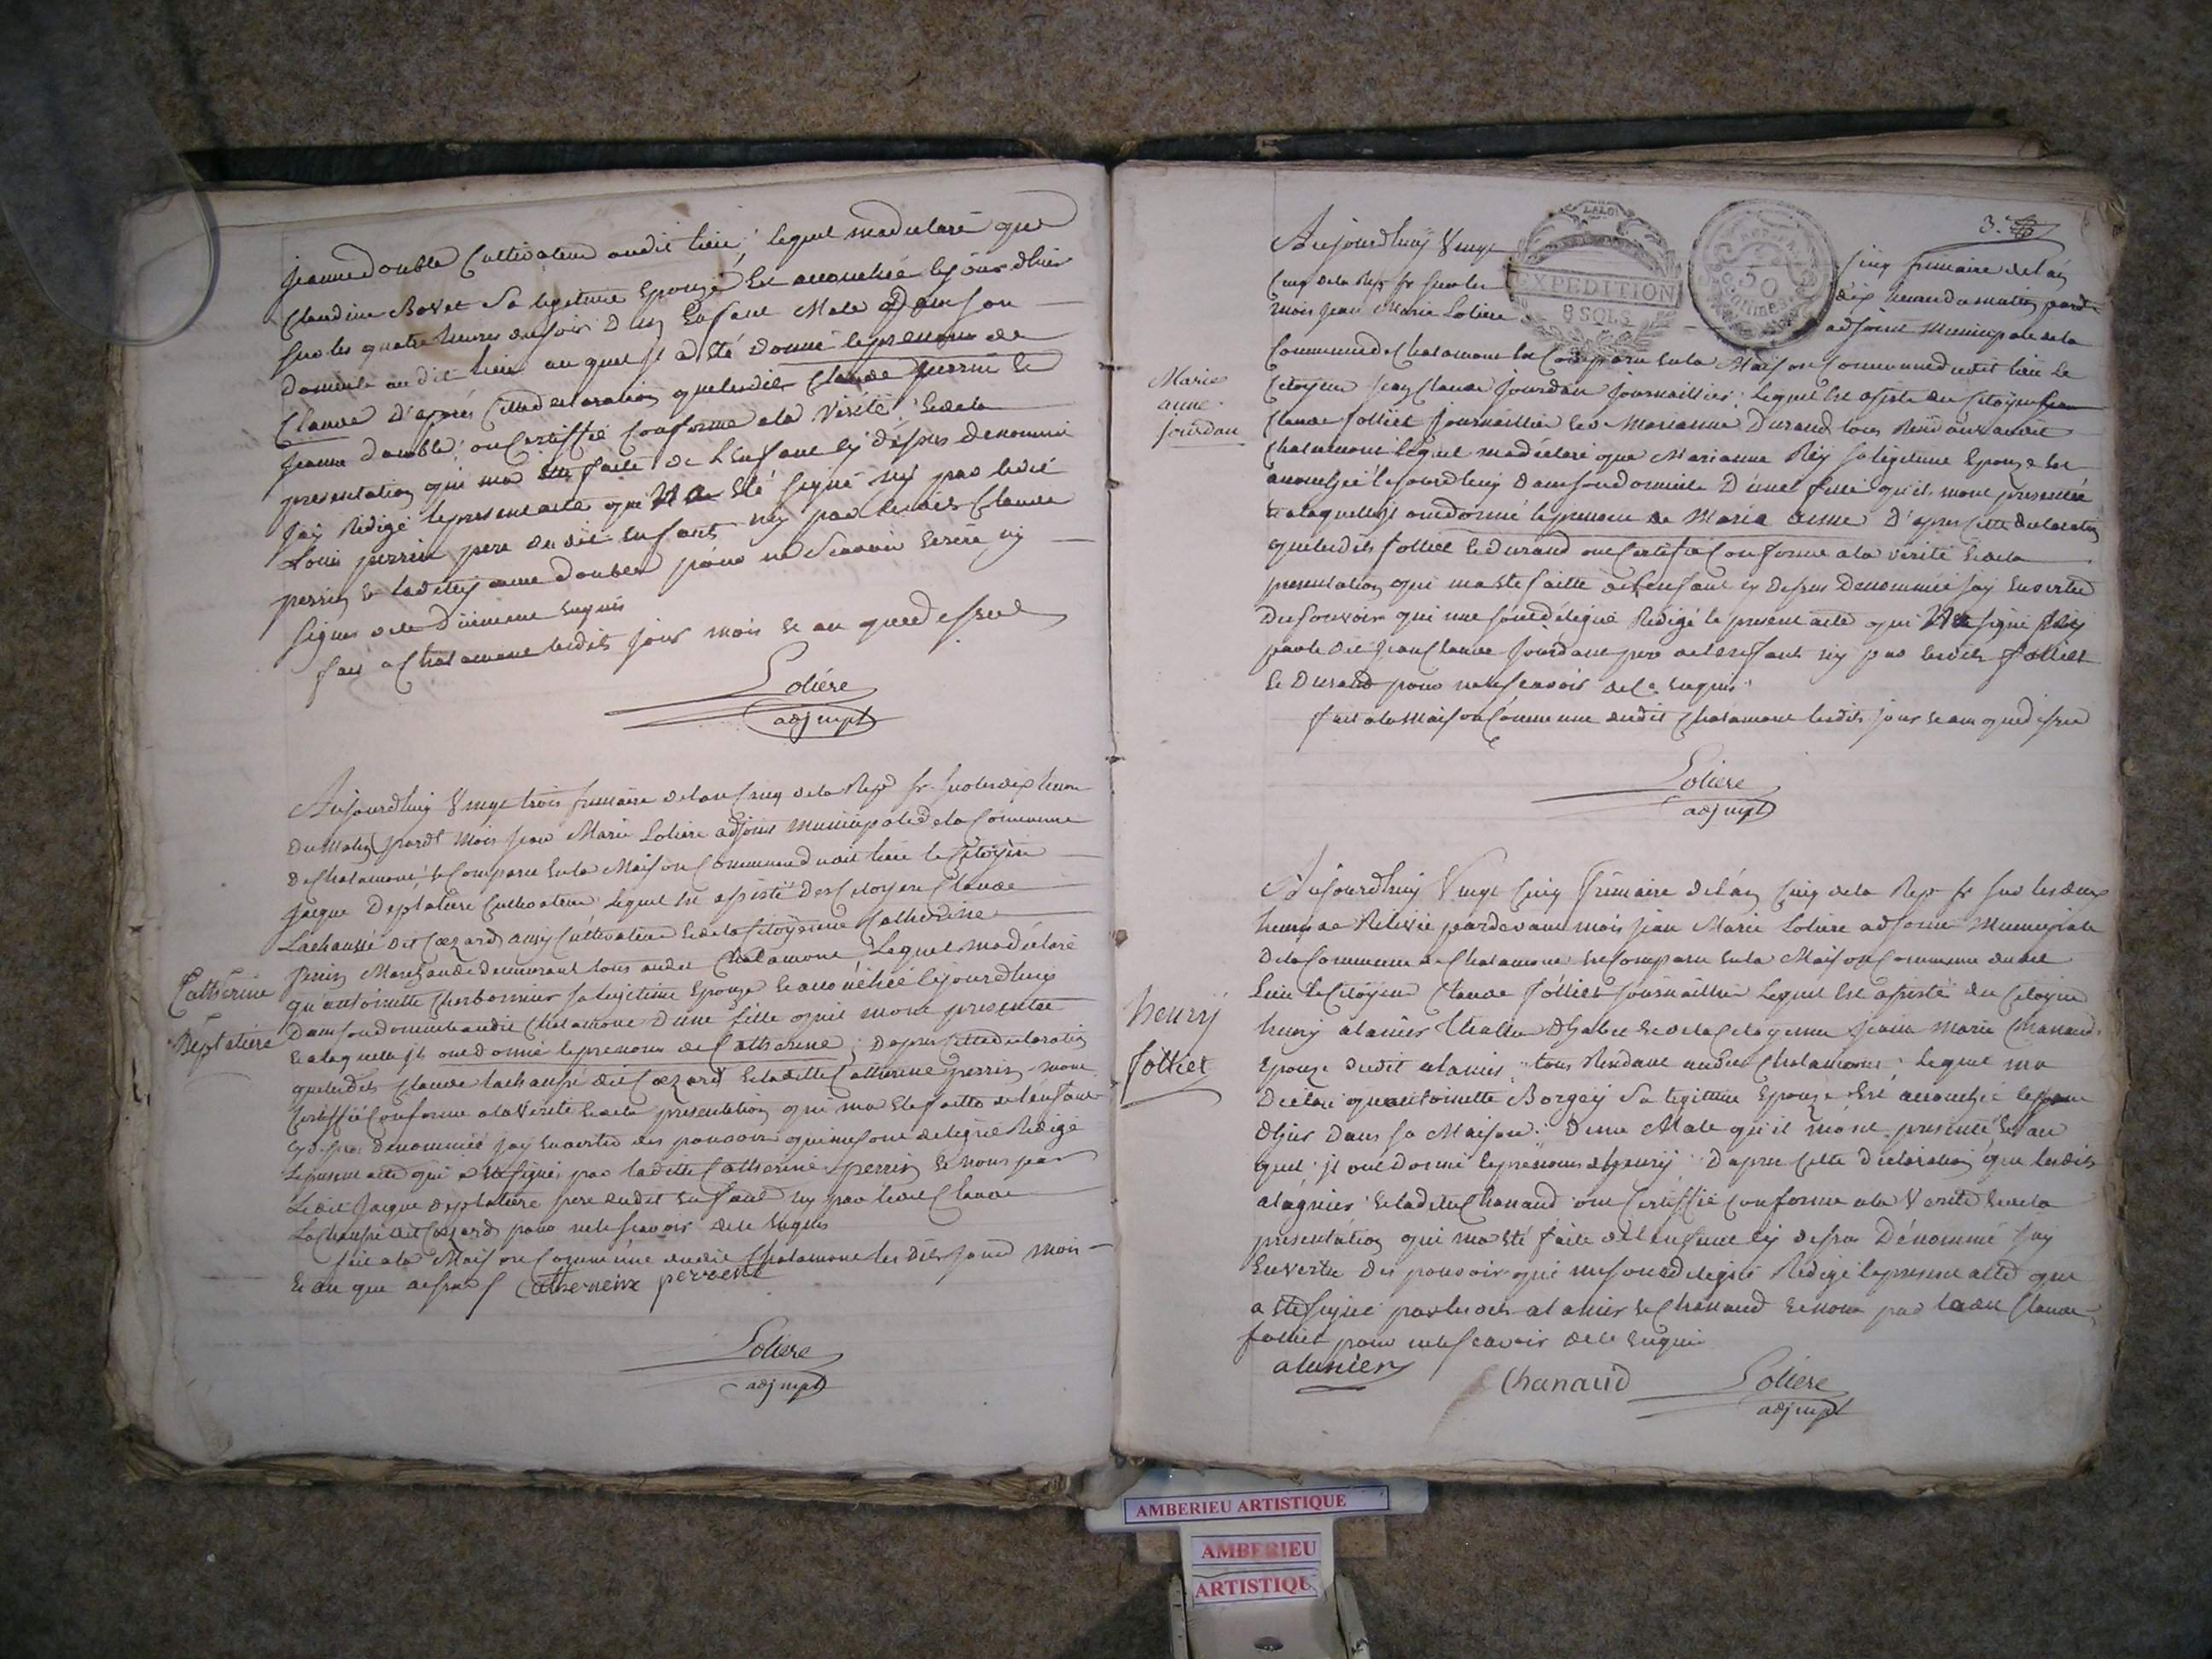 jeanne double Cultivateur audit lieu, lequel ma declaré que
Claudine Bovet Sa legitime Epouze Est accouchée lejour dhier
sur les quatre heures du soir D'un Enfant Male dans son
domicile audit lieu auquel jl a Eté donné le prenom de
Claude D'après Cette declaration que lesdits Claude perrin Et
jeanne double ont Certiffié Conforme a la Vérité Et de la
presentation qui ma Eté faite de L'Enfant cy dessus denommé
jay Rédigé le present acte qui Na Eté signé ny par ledit
Louis perrin pere dudit Enfant ny par lesdits Claude
perrin & laditte jeanne double pour ne Scavoir Ecrire ny
signer de ce duement Enquis
fait a Chalamont lesdits jour mois Et an que dessus
Loliere
adj mpl
Aujourdhuy Vingt trois frimaire de lan Cinq de la Rep fr sur les dix heures
du Matin pardt Moy jean Marie Loliere adjoint Municipale de la Commune
de Chalamont, Est Comparu En la Maison Commune dudit lieu le Citoyen
Jacque Deplatiere Cultivateur lequel Est assisté des Citoyen Claude
Lachaussé dit Cozard aussy Cultivateur Et de la Citoyenne Catherine
perrin Marchande demeurant tous audit Chalamont Lequel ma déclaré
qu'antoinette Charbonnier sa legitime Epouze Est accouchée lejourdhuy
Dans son domicile audit Chalamont D'une fille quil mont presentée
Et a laquelle jls ont donné le prenom de Catherine ; Dapres Cette declaration
que lesdits Claude lachaussé dit Cozard Et laditte Catherine perrin mont
Certiffié Conforme a la Verité Et de la presentation qui ma Eté faitte de l'enfant
cy dessus denommée jay En vertu des pouvoir qui me sont delegué Redigé
le present acte qui a Eté signé par laditte Catherine perrin Et nous par
Ledit Jacque Deplatiere pere dudit Enfant ny par ledit Claude
Lachaussé dit Cozard pour ne le scavoir de ce Enquis
fait a la Maison Commune dudit Chalamont les dits jour mois
Et an que dessus Catherieine perrene
Catherine
Deplatiere
Loliere
adj mpl
3.
LA LOI
EXPEDITION
8 SOLS
50
Aujourdhuy Vingt Cinq frimaire de l'an
Cinq de la Rep fr sur les dix heures du matin pardt
Moy Jean Marie Loliere adjoint Municipale de la
Commune de Chalamont Est Comparu En la Maison Commune dudit lieu Le
Citoyen Jean Claude Jourdan journaillier ; Lequel Est assisté du Citoyen
Claude folliet journaillier Et Marianne Durand tous Residants audit
Chalamont Lequel ma déclaré que Marianne Rey sa légitime Epouze Est
accouchée lejourdhuy dans son domicile D'une fille qu'ils mont presentée
Et a laquelle jl ont donné le prenom de Maria anne D'apres Cette declaration
que lesdits folliet Et durand ont Certifié Conforme a la vérité Et de la
presentation qui ma Eté faitte de l'enfant cy dessus denommée jay En vertu
Du Pouvoir qui me sont délegué Rédigé le present acte qui Na Eté signé Ny
par le dit Jean Claude Jourdant pere de l'enfant ny par lesdits folliet
Et Durand pour ne le scavoir de Ce Enquis
fait a la Maison Commune dudit Chalamont lesdits jour et an que dessus
Marie
anne
Jourdan
Loliere
adj mpl
Aujourdhuy Vingt Cinq frimaire de l'an Cinq de la Rep fr sur les deux
heures de Relevée pardevant moy Jean Marie Loliere adjoint Municipale
De la Commune de Chalamont Est Comparu En la Maison Commune dudit
Lieu le Citoyen Claude folliet journaillier Lequel Est assisté du Citoyen
henry alanier Et de la Citoyenne jeanne marie Chanaud
Epouze dudit alanier tous Residant audit Chalamont ; Lequel ma
Déclaré quantoinette Borgey Sa legitime Epouze Est accouchée le jour
dhier Dans sa Maison D'une Male qu'il mont presenté Et au
quel jl ont donné le prenom dhenry D'apres Cette declaration que lesdits
alagnier Et ladite Chanaud ont Certiffié Conforme a la Verité Et de la
présentation qui ma Eté faite de l'enfant cy dessus Dénommé jay
En vertu des pouvoir qui me sont delegués Redigé le present acte qui
a Eté signé par lesdits alanier Et Chanaud Et non par ledit Claude
folliet pour ne le scavoir de Ce Enquis
henry
folliet
alanier
Chanaud
Loliere
adj mpl
AMBERIEU ARTISTIQUE
AMBERIEU
ARTISTIQUE